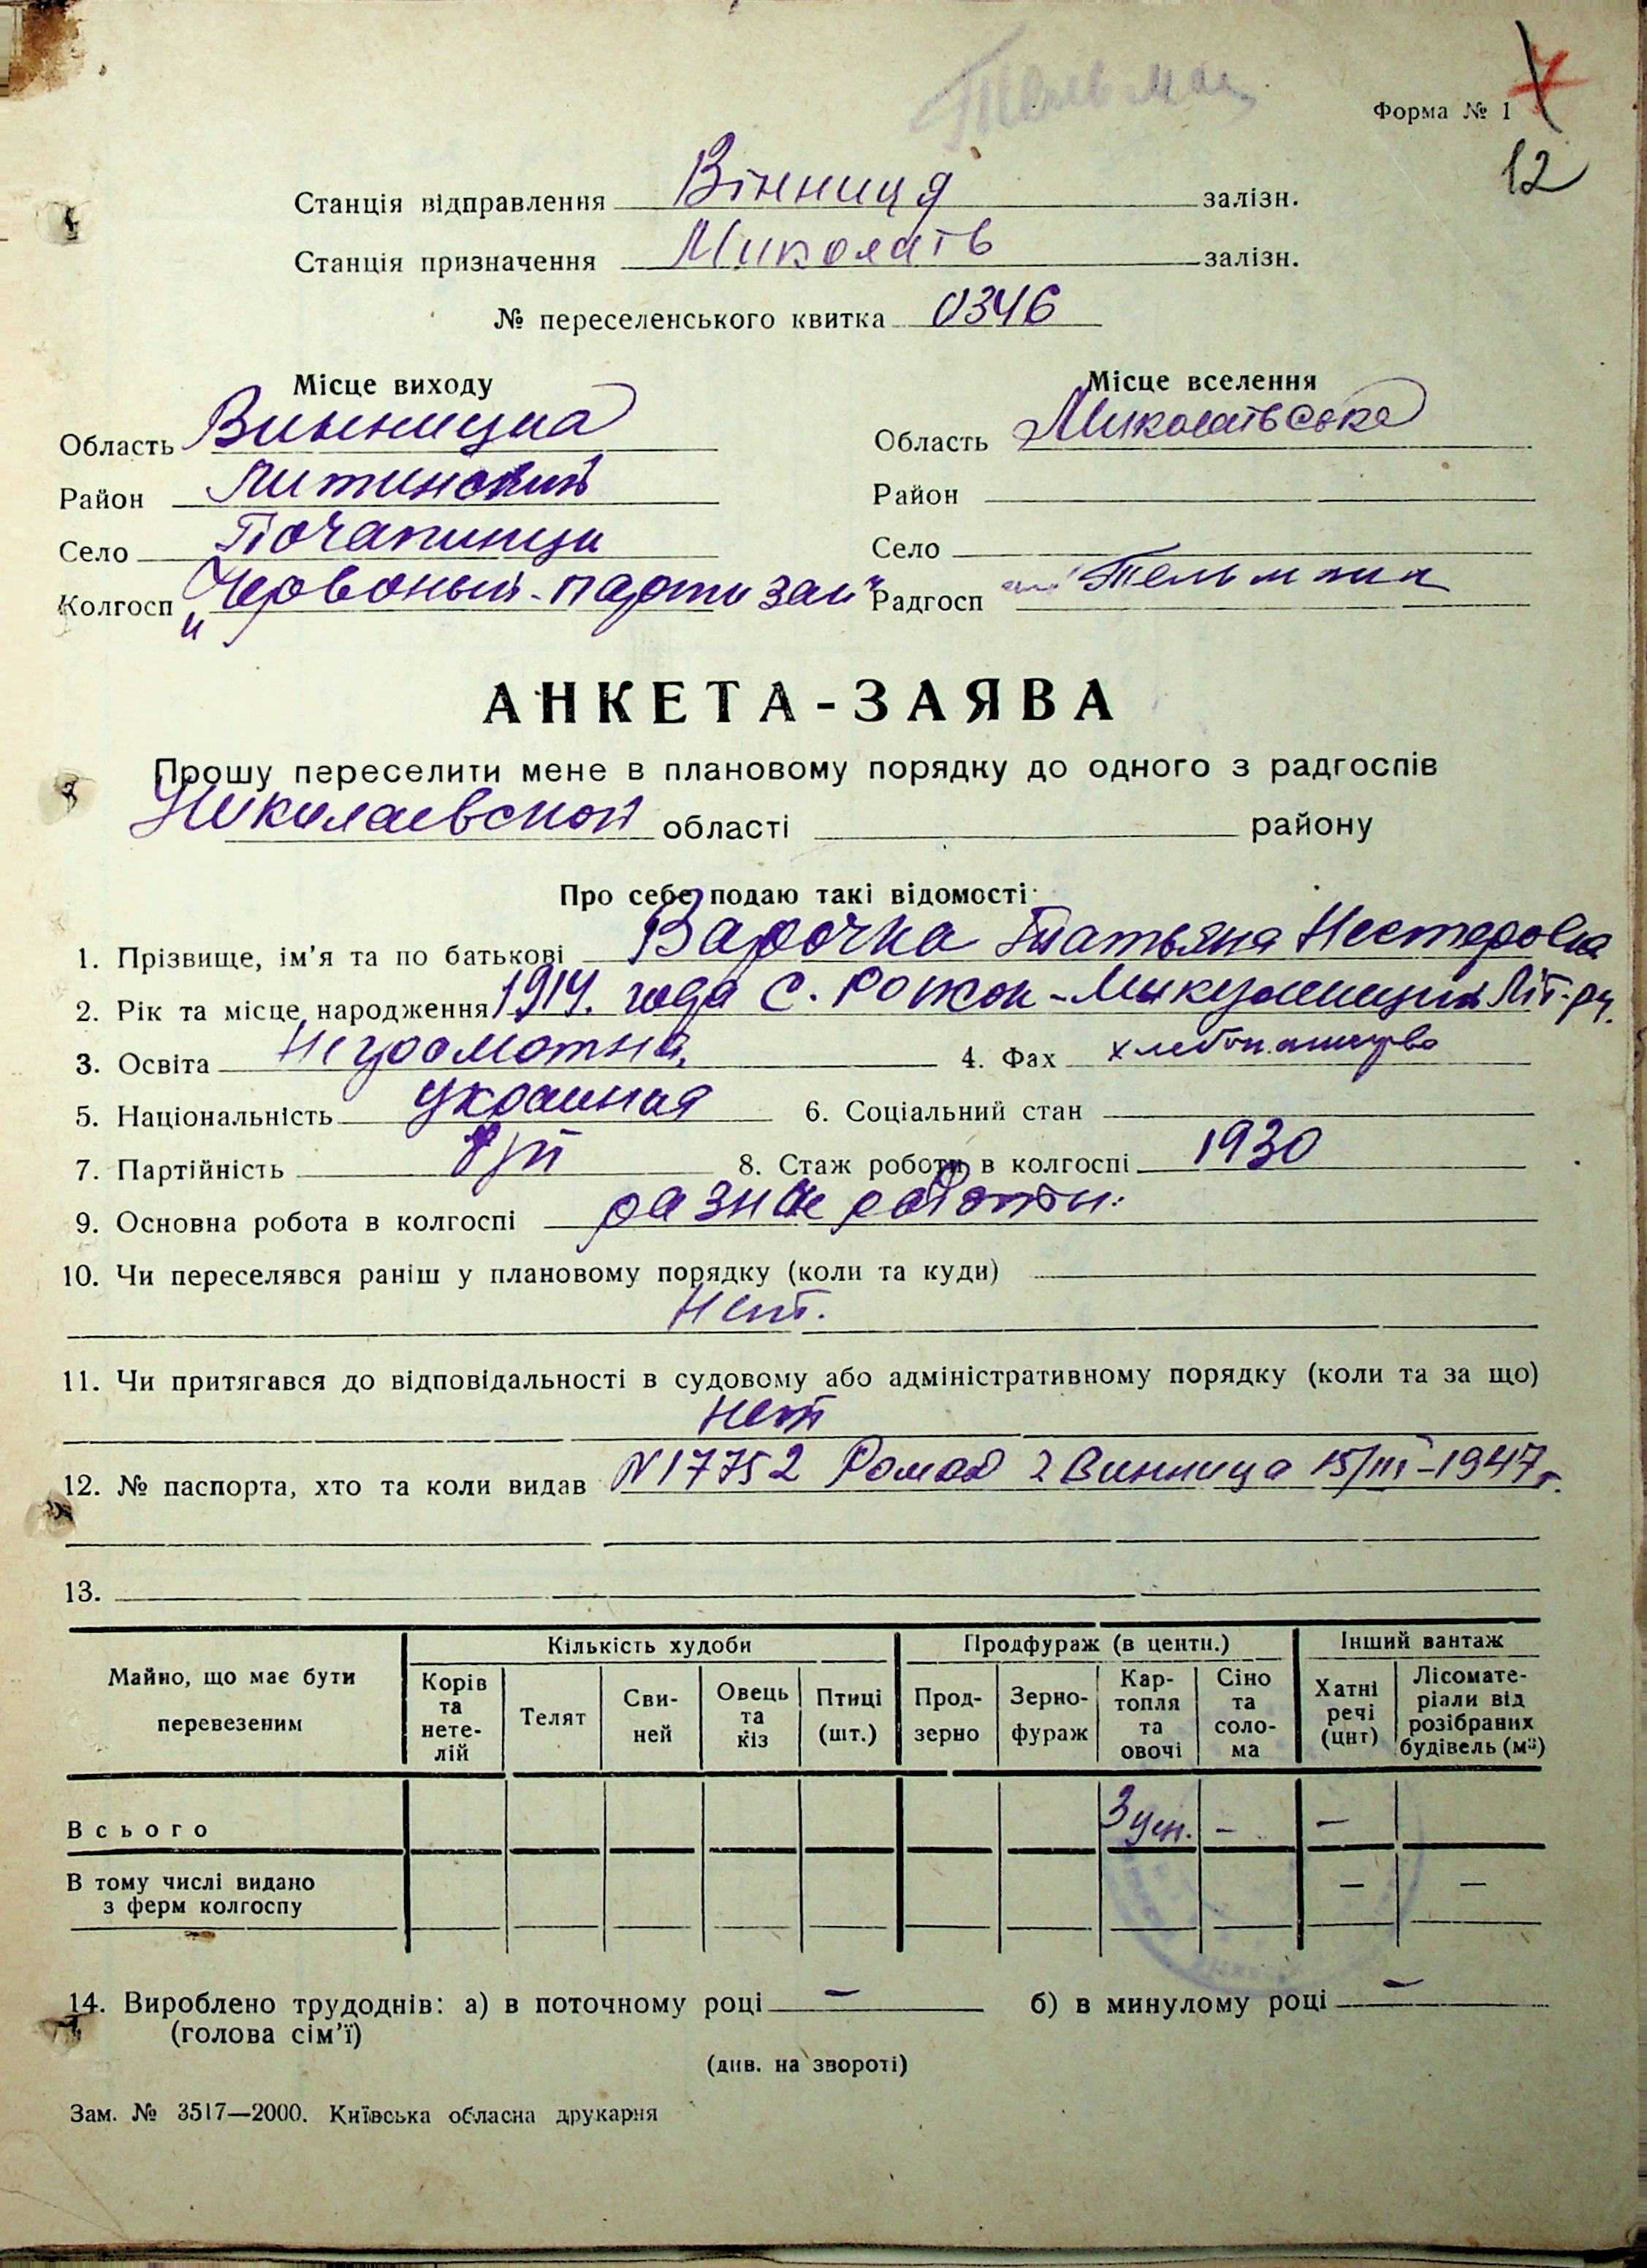 Тельман
Форма № 1
7
12
Станція відправлення Вінниця залізн.
Станція призначення Миколаїв залізн.
№ переселенського квитка 0346
Місце виходу Місце вселення
Область Винницка Область Миколаївська
Район Литинский Район
Село Почапинци Село
Колгосп „Червоный-партизан“ Радгосп Тельмана
АНКЕТА-ЗАЯВА
Прошу переселити мене в плановому порядку до одного з радгоспів
Николаевской області району
Про себе подаю такі відомості:
1. Прізвище, ім’я та по батькові Варочка Татьяна Нестеровна
2. Рік та місце народження 1914. года С. Рожок-Микулинецкий Літ-р.
3. Освіта Неграмотна. 4. Фах
5. Національність украиная 6. Соціальний стан
7. Партійність б/п 8. Стаж роботи в колгоспі 1930
9. Основна робота в колгоспі разные работы.
10. Чи переселявся раніш у плановому порядку (коли та куди)
Нет.
11. Чи притягався до відповідальності в судовому або адміністративному порядку (коли та за що)
Нет
12. № паспорта, хто та коли видав N 17752 г Винница 15/III-1947г.
13.
Майно, що має бути перевезеним
Кількість худоби Продфураж (в центн.) Інший вантаж
Корів та нетелій Телят Свиней Овець та кіз Птиці (шт.) Прод-зерно Зерно-фураж Картопля та овочі Сіно та солома Хатні речі (цнт) Лісоматеріали від розібраних будівель (м³)
Всього 3 цн. - -
В тому числі видано
з ферм колгоспу - -
14. Вироблено трудоднів: а) в поточному році - б) в минулому році -
(голова сім’ї)
(див. на звороті)
Зам. № 3517—2000. Київська обласна друкарня